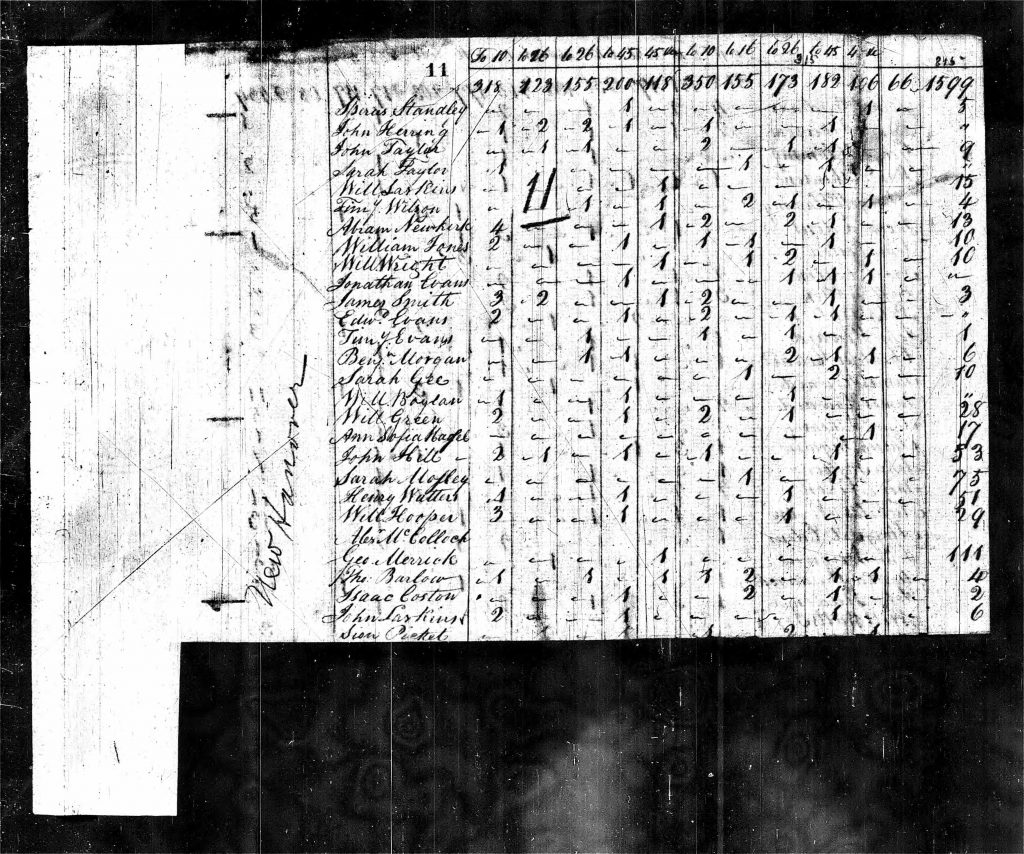 11
To 10 to 26 to 45 45 to 10 to 16 to 26 to 45
315 845
318 123 155 200 118 350 155 173 182 106 66 1599
Standley 1 1 5
John Herring 1 2 2 1 1 1 "
John Taylor 1 1 2 1 1 9
Sarah Taylor 1 1 1 "
Will Larkins 1 15
Timy. Wilson 1 1 2 1 1 4
Abram Newkirk 4 1 2 2 1 13
William Jones 2 1 1 1 1 10
Will Wright 1 1 2 1 10
Jonathan Evans 1 1 1 1 "
James Smith 3 2 1 2 1 3
Edwd. Evans 2 1 2 1 1 "
Timy Evans 1 1 1 1
Benj. Morgan 1 1 2 1 1 6
Sarah Gee 1 2 10
Will Boylan 1 1 1 "
Will Green 2 1 2 1 28
Ann Sofia 1 17
John Hill 2 1 1 1 1 53
Sarah Mosley 1 1 75
Henry Watters 1 1 1 51
Will Hooper 3 1 1 29
McColloch
Geo. Merrick 1 111
Tho. Barlow 1 1 1 1 2 1 1 4
Isaac Coston 1 2 1 2
John Larkins 2 1 1 6
Sion Picket 1 2 1
11
New Hanover